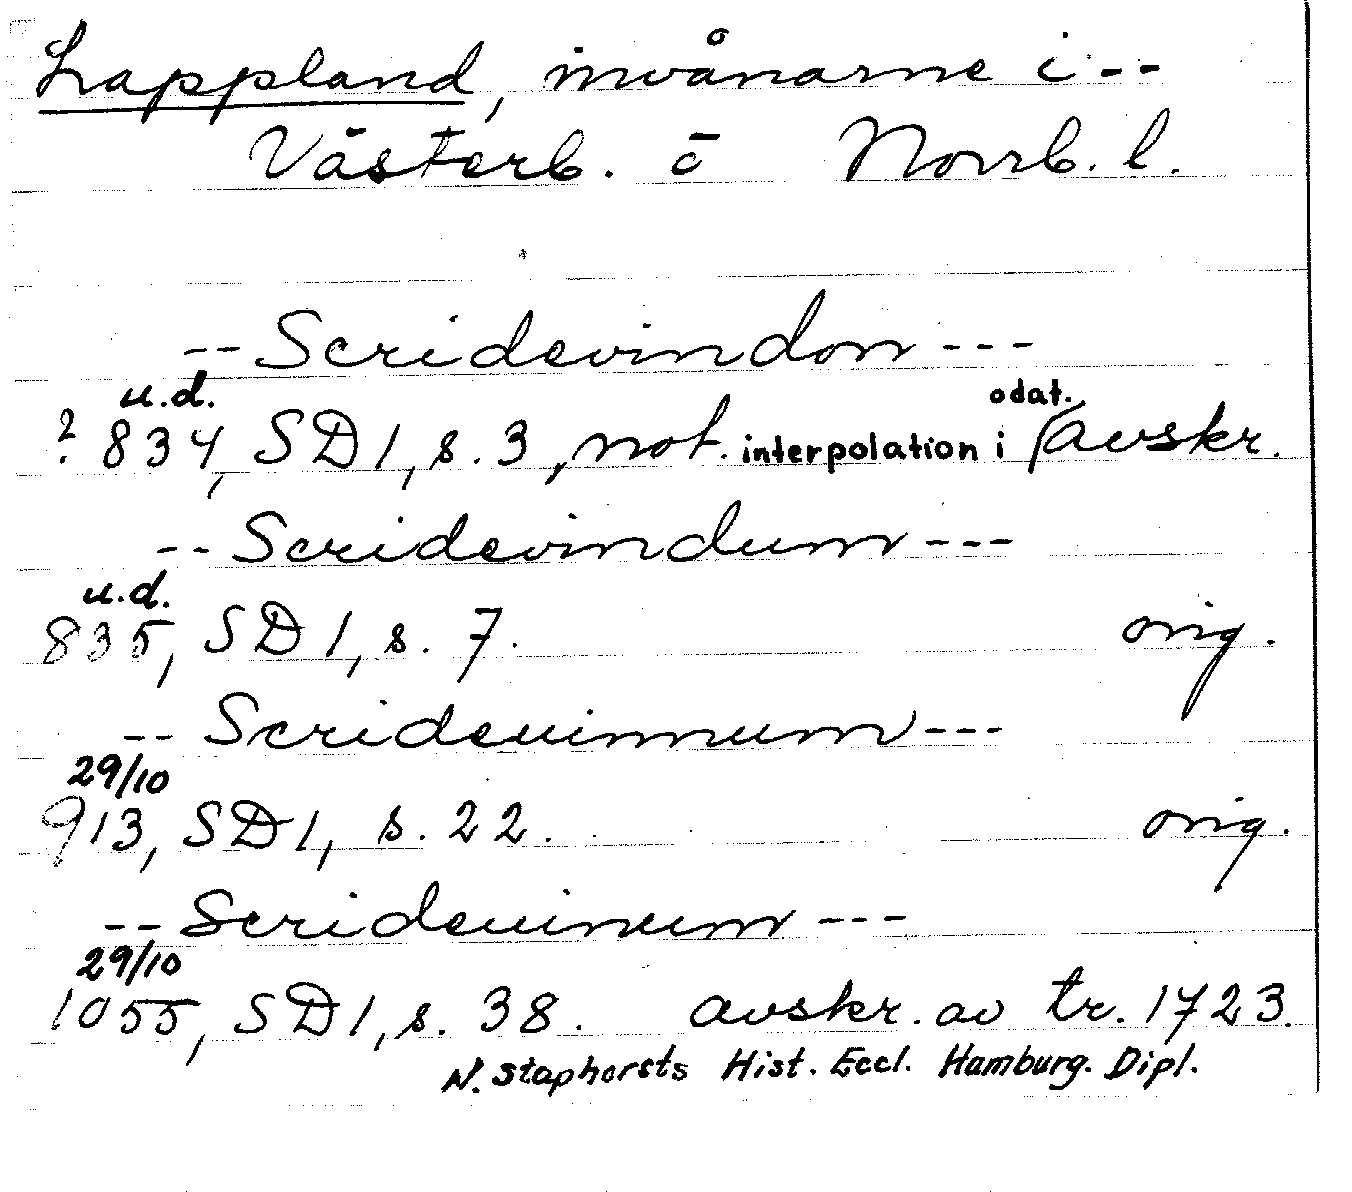 Lappland, invånarne i --
Västerb. o Norrb. l.
-- Scridevindon ---
u.d. odat.
? 834, SD 1, s. 3, not. interpolation i avskr.
-- Scridevindum ---
u.d.
835, SD 1, s. 7. orig.
-- Scrideuinnum ---
29/10
913, SD 1, s. 22. orig.
-- Scrideuinum ---
29/10
1055, SD 1, s. 38. avskr. av tr. 1723.
N. Staphorsts Hist. Eccl. Hamburg. Dipl.